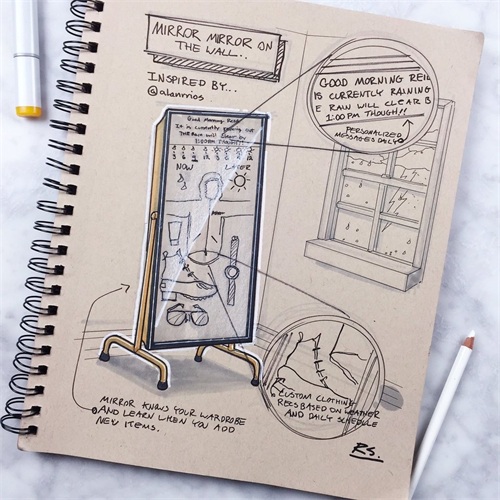 MIRROR MIRROR ON
THE WALL...
INSPIRED BY...
@alanrios
GOOD MORNING REI
IS CURRENTLY RAINING
E RAIN WILL CLEAR B
1:00 PM THOUGH!!
PERSONALIZED
MESSAGES DAILY
Good Morning
It is currently out
THE Rain will by
1:00PM
NOW LATER
CUSTOM CLOTHING
RECS BASED ON WEATHER
AND DAILY SCHEDULE
MIRROR KNOWS YOUR WARDROBE
AND LEARN WHEN YOU ADD
NEW ITEMS.
RS.